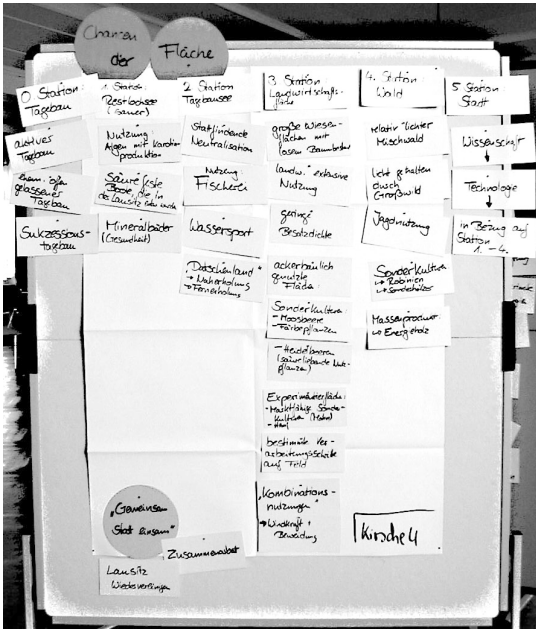 Chancen
der
Fläche
0 Station:
Tagebau
aktives
Tagebau
gelassener
Tagebau
Sukzessions-
tagebau
1 Station:
Restlochsee
(sauer)
Nutzung
Algen mit Karotin
produktion
Säurefeste
Boote, die in
der Lausitz
Mineralbäder
(Gesundheit)
2 Station
Tagebausee
Stattfindende
Neutralisation
Nutzung
Fischerei
Wassersport
"Datschenland"
→ Naherholung
→ Fernerholung
3 Station
Landwirtschafts-
fläche
große Wiesen-
flächen mit
losem Baumbestand
landw. extensive
Nutzung
geringe
Besatzdichte
ackerbaulich
genutzte
Fläche
Sonderkulturen
- Moosbeere
- Färberpflanzen
- Heidelbeeren
(säureliebende
pflanzen)
Experimentierfläche:
- Marktfähige Sonder-
kulturen
- Hanf
bestimmte Ver-
arbeitungsschritte
auf Feld
"Kombinations-
nutzungen"
→ Windkraft +
Beweidung
4. Station:
Wald
relativ lichter
Mischwald
licht gehalten
durch
Großwild
Jagdnutzung
Sonderkulturen
→ Robinien
→ Sonderhölzer
Massenproduc.
→ Energieholz
Kirsche 4
5 Station:
Stadt
Wissenschaft
↓
Technologie
↓
in Bezug auf
Station
1. - 4.
"Gemeinsam
statt einsam"
Zusammenarbeit
Lausitz